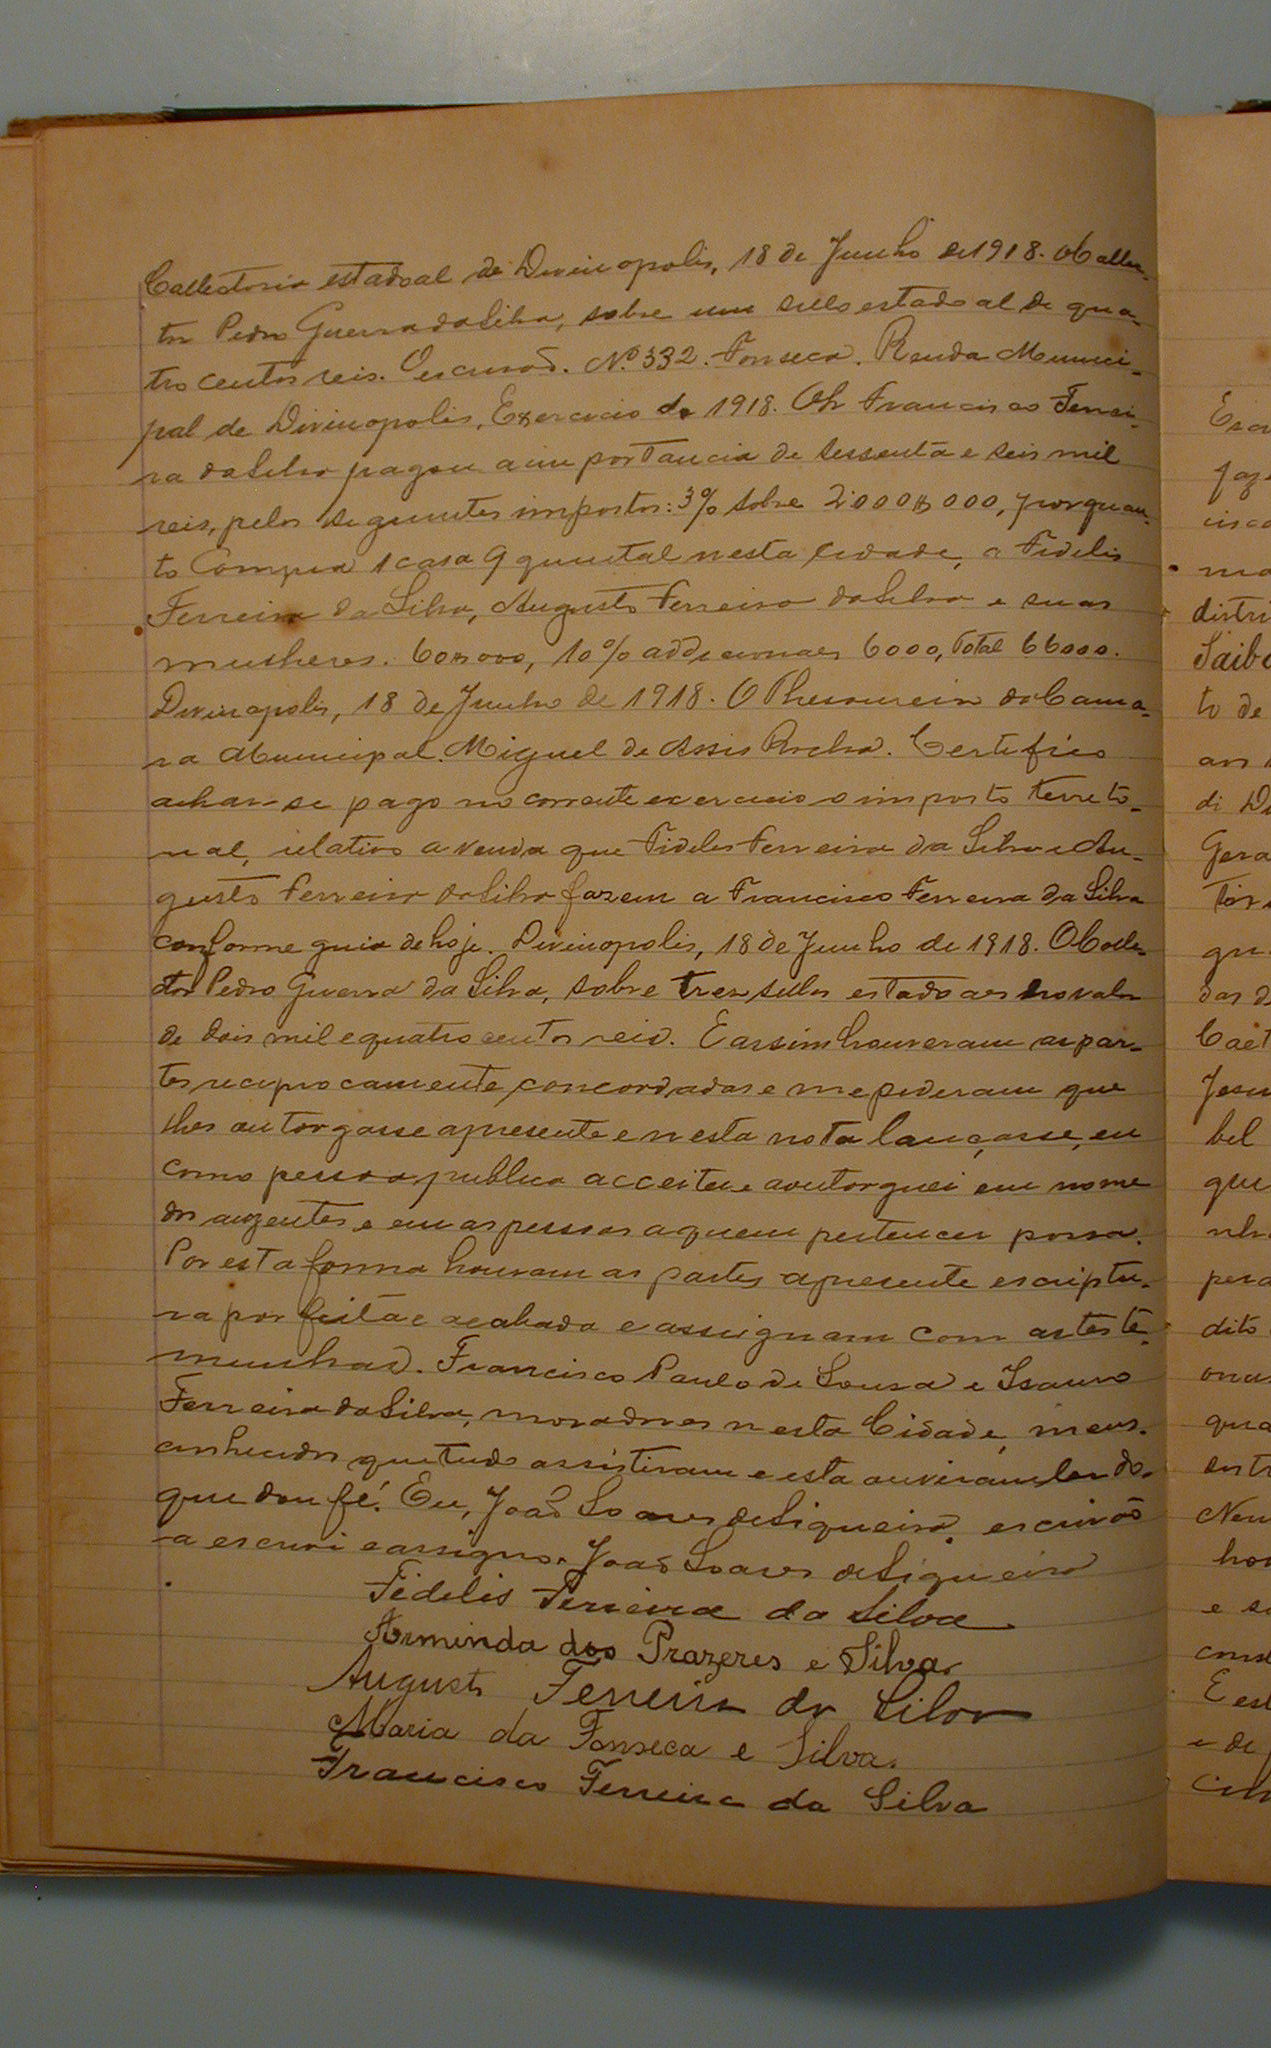 Collectoria estadoal de Divinopolis, 18 de Junho de 1918. O Collec-
tor Pedro Guerra da Silva, sobre um sello estadoal de qua-
tro centos reis. O escrivão. Nº 332. Fonseca. Renda Munici-
pal de Divinopolis, Exercicio de 1918. O Sr Francisco Ferrei-
ra da Silva pagou a importancia de sessenta e seis mil
reis, pelos seguintes impostos: 3% sobre 2:000$000, porquan-
to Compra 1 casa q quintal nesta cidade, a Fidelis
Ferreira da Silva, Augusto Ferreira da Silva e suas
mulheres. 60$000, 10% addicionaes 6000, Total 66000.
Divinopolis, 18 de Junho de 1918. O Thesoureiro da Cama-
ra Municipal. Miguel de Assis Rocha. Certifico
achar-se pago no corrente exercicio o imposto territo-
rial, relativo a venda que Fidelis Ferreira da Silva e Au-
gusto Ferreira da Silva fazem a Francisco Ferreira da Silva
conforme guia de hoje. Divinopolis, 18 de Junho de 1918. O Collec-
tor Pedro Guerra da Silva, sobre tres sellos estadoaes no valor
de dois mil e quatro centos reis. E assim houveram as par-
tes reciprocamente concordadas e me pediram que
lhes outorgasse a presente e nesta nota lançasse, eu
como pessoa publica acceitei e a outorguei em nome
dos auzentes e em as pessoas a quem pertencer possa.
Por esta forma houvam as partes a presente escriptu-
ra por feita e acabada e assignam com as teste-
munhas. Francisco Paulo de Sousa e Isauro
Ferreira da Silva, moradores nesta Cidade, meus
conhecidos que tudo assistiram e esta ouviram ler do
que dou fé. Eu, João Soares de Siqueira, escrivão
a escrevi e assigno. João Soares de Siqueira
Fidelis Ferreira da Silva
Arminda dos Prazeres e Silva.
Augusto Ferreira da Silva
Maria da Fonseca e Silva.
Francisco Ferreira da Silva